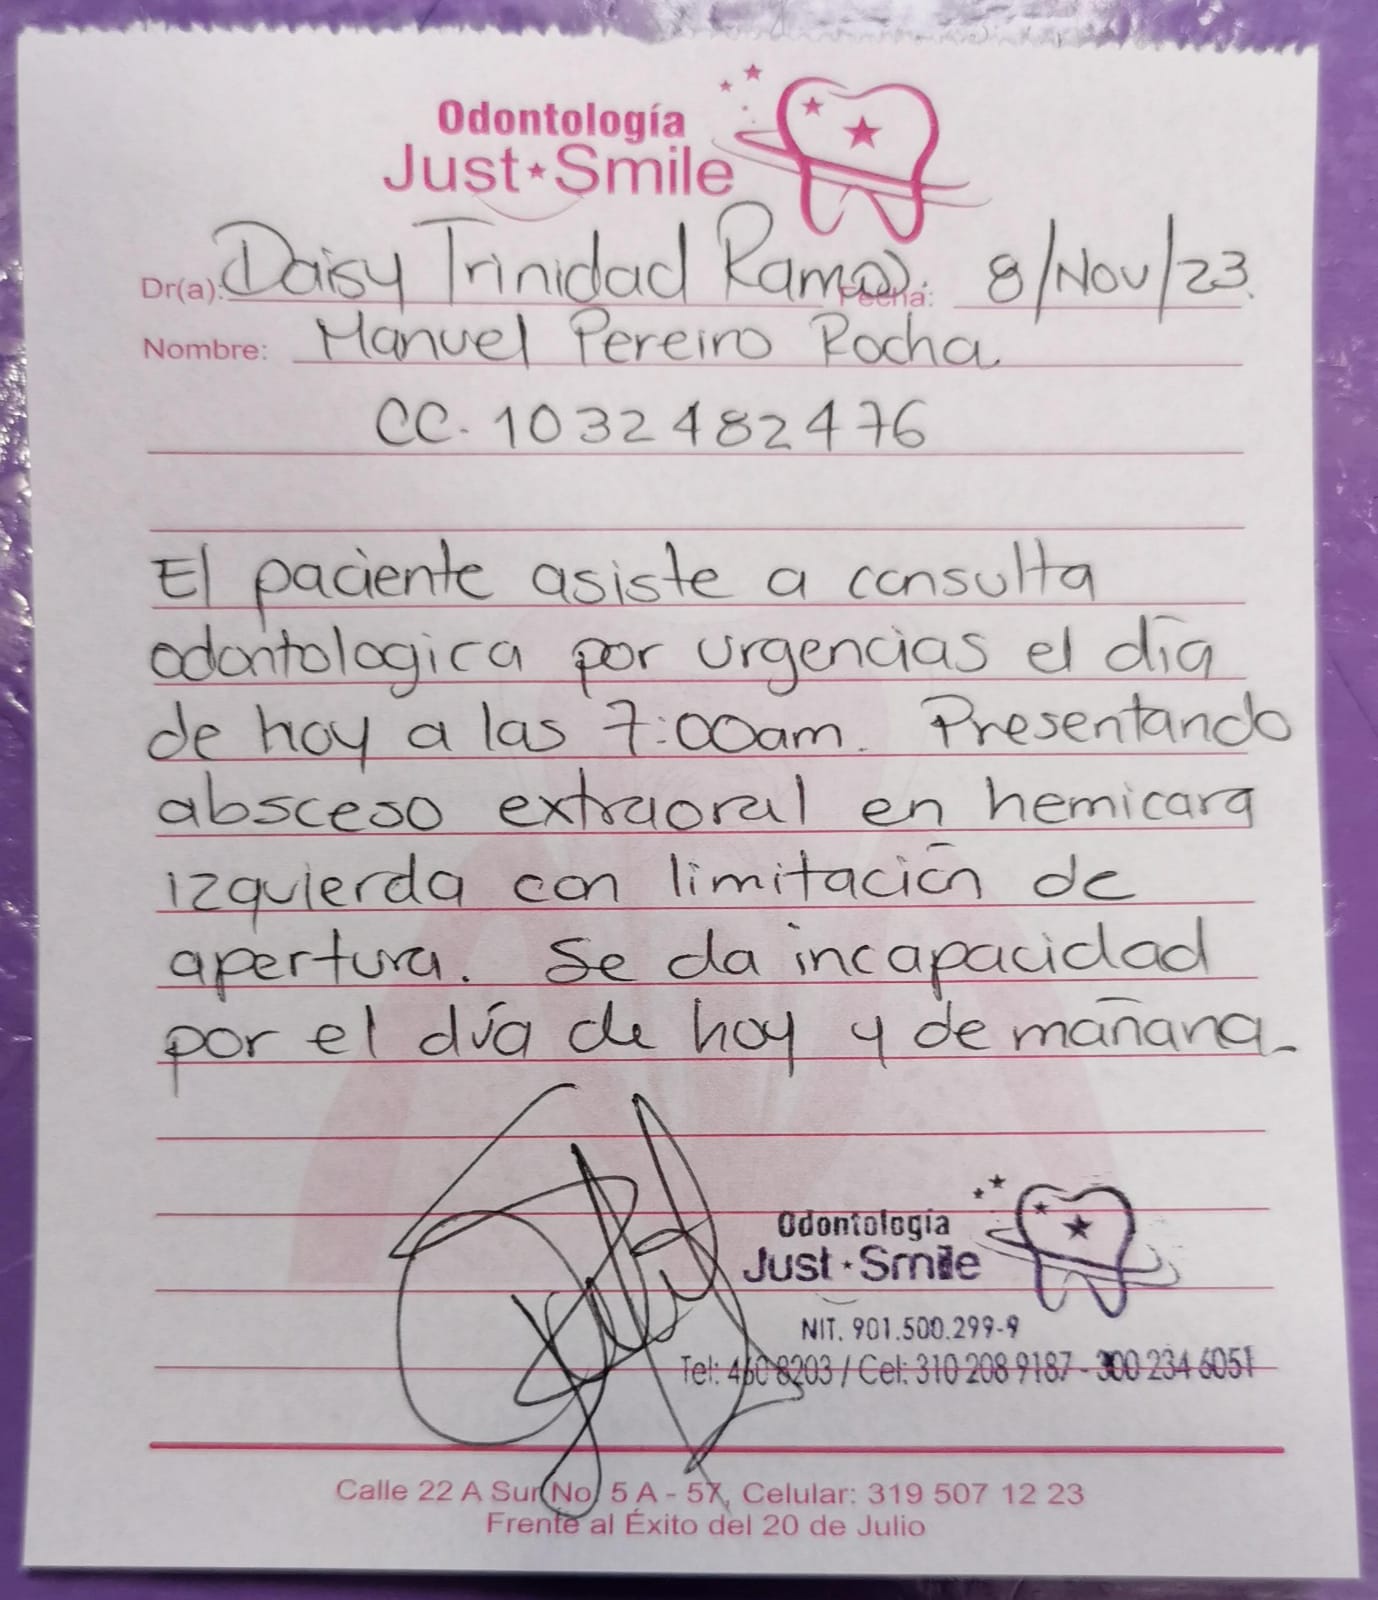 Odontología
Just Smile
Dr(a): Daisy Trinidad Ramos. Fecha: 8/Nov/23.
Nombre: Manuel Pereiro Rocha
CC. 1032482476
El paciente asiste a consulta
odontologica por urgencias el día
de hoy a las 7:00am. Presentando
absceso extraoral en hemicara
izquierda con limitación de
apertura. Se da incapacidad
por el día de hoy y de mañana.
Odontología
Just Smile
NIT. 901.500.299-9
Tel: 460 8203 / Cel: 310 208 9187 - 300 234 6051
Calle 22 A Sur No 5 A - 57, Celular: 319 507 12 23
Frente al Éxito del 20 de Julio